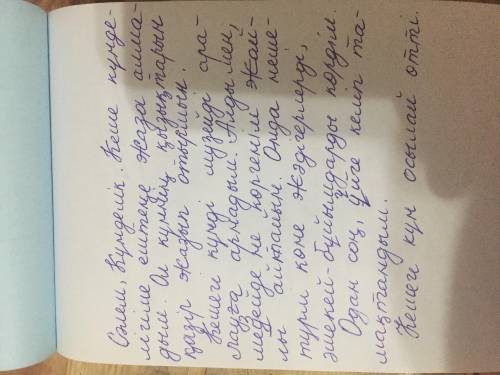 Сәлем, Күнделік. Кеше күнде-
лігіме ештеңе жаза алма-
дым. Ол күннің қызықтарын
қазір жазып отырмын.
Кешегі күнді музейді ара-
лауға арнадым. Алдымен,
медейде не көргенім жай-
лы айтайын. Онда неше-
түрлі көне жәдігерлерді,
әшекей-бұйымдарды көрдім.
Одан соң, үйге келіп та-
мақтандым.
Кешегі күн осылай өтті.